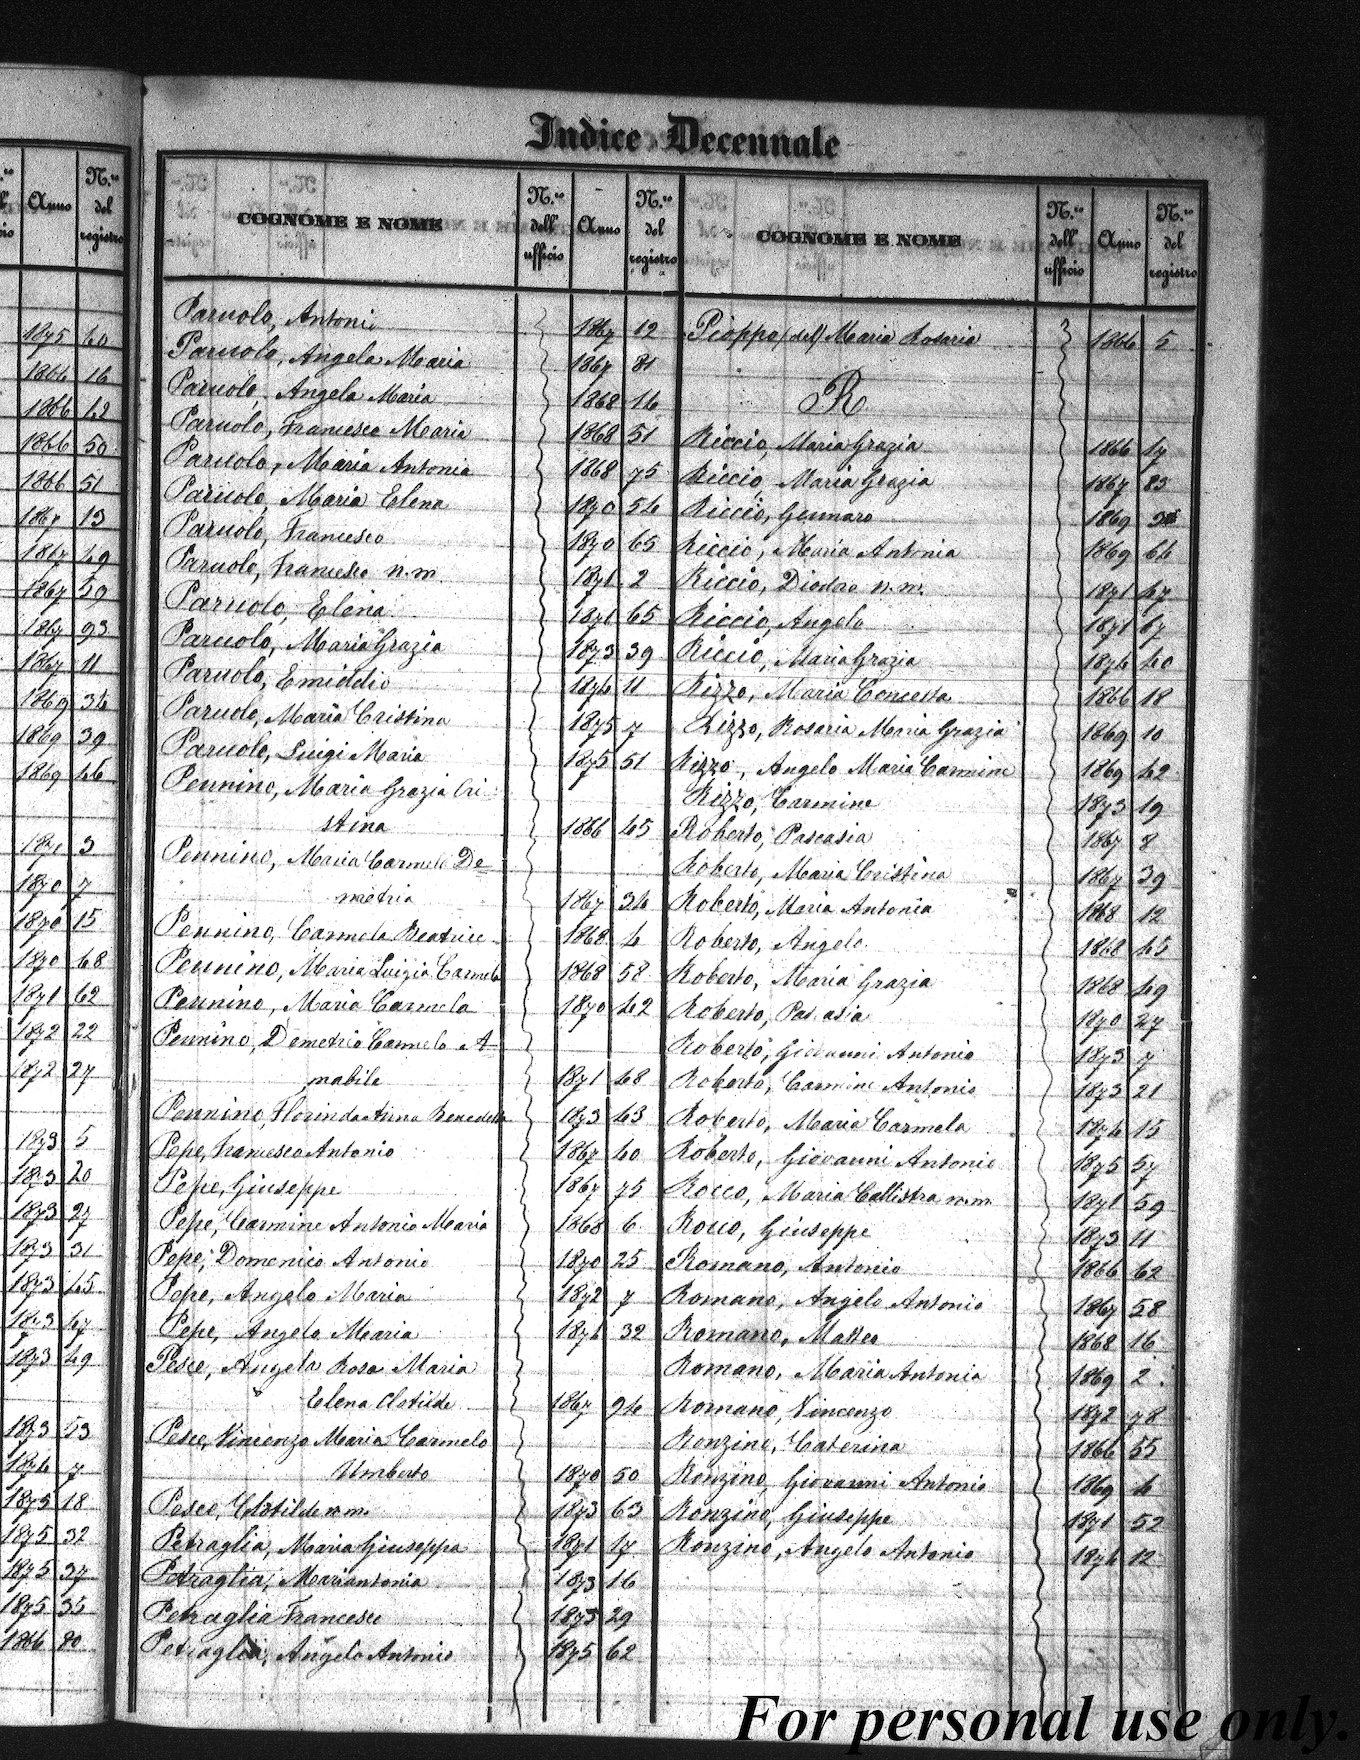 Indice Decennale
N.ro dell' ufficio Anno N.ro del registro
COGNOME E NOME N.ro dell' ufficio Anno N.ro del registro
COGNOME E NOME N.ro dell' ufficio Anno N.ro del registro
1875 40
1866 16
1866 42
1866 50
1866 51
1867 13
1867 49
1867 59
1867 93
1867 11
1869 34
1869 39
1869 46
1870 3
1870 7
1870 15
1870 68
1871 62
1872 22
1872 27
1873 5
1873 20
1873 27
1873 31
1873 45
1873 47
1873 49
1873 53
1874 7
1875 18
1875 32
1875 27
1875 35
1866 80
Paruolo, Antonio 1867 12
Paruolo, Angela Maria 1867 81
Paruolo, Angela Maria 1868 14
Paruolo, Francesco Maria 1868 51
Paruolo, Maria Antonia 1868 75
Paruolo, Maria Elena 1870 54
Paruolo, Francesco 1870 65
Paruolo, Francesco n.m. 1871 2
Paruolo, Elena 1871 65
Paruolo, Maria Grazia 1873 39
Paruolo, Emiddio 1874 11
Paruolo, Maria Cristina 1875 7
Paruolo, Luigi Maria 1875 51
Pennino, Maria Grazia Cri-
stina 1866 45
Pennino, Maria Carmela De=
metria 1867 34
Pennino, Carmela Beatrice 1868 4
Pennino, Maria Luigia Carmela 1868 58
Pennino, Maria Carmela 1870 42
Pennino, Demetrio Carmelo A-
mabile 1871 48
Pennino, Florinda Anna Benedetta 1873 43
Pepe, Francesco Antonio 1867 40
Pepe, Giuseppe 1867 75
Pepe, Carmine Antonio Maria 1868 6
Pepe, Domenico Antonio 1870 25
Pepe, Angelo Maria 1872 7
Pepe, Angela Maria 1874 32
Pesce, Angela Rosa Maria
" Elena Clotilde 1867 94
Pesce, Vincenzo Maria Carmelo
Umberto 1870 50
Pesce, Clotilde n.m. 1873 63
Petraglia, Maria Giuseppa 1871 17
Petraglia, Mariantonia 1873 16
Petraglia Francesco 1873 29
Petraglia, Angelo Antonio 1875 62
Pioppo (del) Maria Rosaria 1866 5
R
Riccio, Maria Grazia 1866 17
Riccio, Maria Grazia 1867 83
Riccio, Gennaro 1869
Riccio, Maria Antonia 1869 64
Riccio, Diodao n.m. 1871 47
Riccio, Angelo 1871 67
Riccio, Maria Grazia 1874 40
Rizzo, Maria Concetta 1866 18
Rizzo, Rosaria Maria Grazia 1869 10
Rizzo, Angelo Maria Carmine 1869 42
Rizzo, Carmine 1873 19
Roberto, Pascasia 1867 8
Roberto, Maria Cristina 1867 39
Roberto, Maria Antonia 1868 12
Roberto, Angelo 1868 45
Roberto, Maria Grazia 1868 49
Roberto, Pascasia 1870 27
Roberto, Giovanni Antonio 1873 7
Roberto, Carmine Antonio 1873 21
Roberto, Maria Carmela 1874 15
Roberto, Giovanni Antonio 1875 57
Rocco, Maria Callistra n.m. 1871 59
Rocco, Giuseppe 1873 11
Romano, Antonio 1866 62
Romano, Angelo Antonio 1867 58
Romano, Matteo 1868 16
Romano, Maria Antonia 1869 2
Romano, Vincenzo 1872 78
Ronzino, Caterina 1866 55
Ronzino, Giovanni Antonio 1869 4
Ronzino, Giuseppe 1871 52
Ronzino, Angelo Antonio 1874 12
For personal use only.